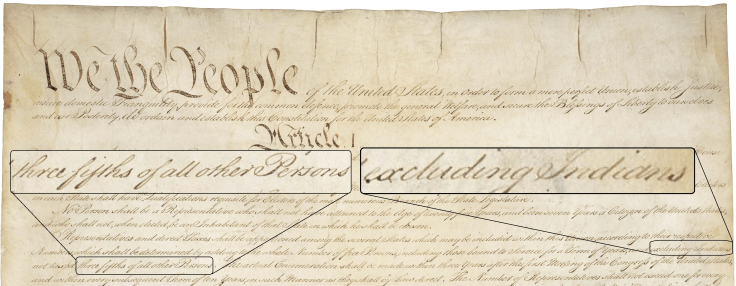 We the People
of the United States, in Order to form a more perfect Union, establish Justice,
insure domestic Tranquility, provide for the common defence, promote the general Welfare, and secure the Blessings of Liberty to ourselves
and our Posterity, do ordain and establish this Constitution for the United States of America.
Article I
three fifths of all other Persons excluding Indians
in each State shall have Qualifications requisite for Electors of the most numerous Branch of the State Legislature.
No Person shall be a Representative who shall not have attained to the Age of twenty five Years, and been seven Years a Citizen of the United States,
and who shall not, when elected, be an Inhabitant of that State in which he shall be chosen.
Representatives and direct Taxes shall be apportioned among the several States which may be included within this Union, according to their respective
Numbers, which shall be determined by adding to the whole Number of free Persons, including those bound to Service for a Term of Years, and excluding Indians
not taxed, three fifths of all other Persons. The actual Enumeration shall be made within three Years after the first Meeting of the Congress of the United States,
and within every subsequent Term of ten Years, in such Manner as they shall by Law direct. The Number of Representatives shall not exceed one for every